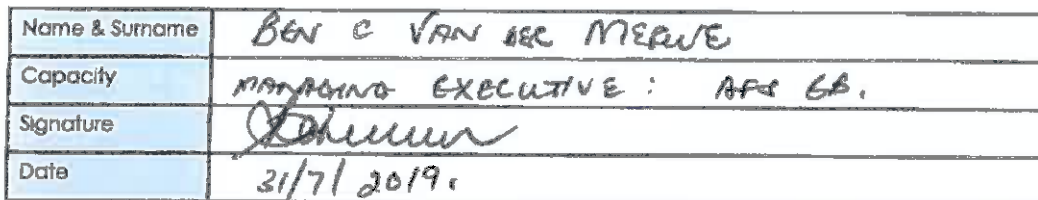 Name & Surname BEN C VAN DER MERWE
Capacity MANAGING EXECUTIVE : AFS GB.
Signature
Date 31/7/2019.